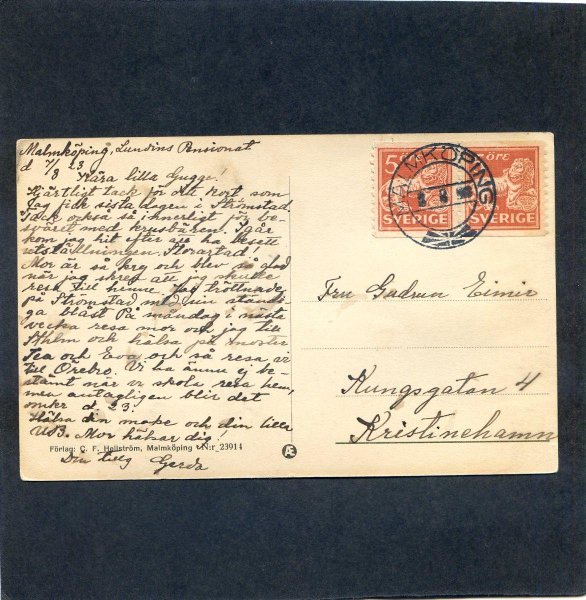 Malmköping, Lundins Pensionat
d 7/8 23
Kära lilla Gugge!
Hjärtligt tack för ditt kort som
jag fick sista dagen i Strömstad.
Tack också så innerligt för be-
sväret med krusbären. Igår
kom jag hit efter att ha besett
utställningen. Storartad!
Mor är så kry och blev så glad
när jag skref att jag skulle
resa till henne. Jag tröttnade
på Strömstad med sin ständi-
ga blåst. På måndag i nästa
vecka resa mor och jag till
Sthlm och hälsa på moster
Tea och Eva och så resa vi
till Örebro. Vi ha ännu ej be-
stämt när vi skola resa hem,
men antagligen blir det
omkr d 23.
Hälsa din make och din lilla
Mor hälsar dig!
Din tillg Gerda
Förlag: C. F. Hellström, Malmköping N:r 23914
Æ
5 ÖRE
SVERIGE
ÖRE
SVERIGE
MALMKÖPING
8
Fru Gudrun Eimir
Kungsgatan 4
Kristinehamn